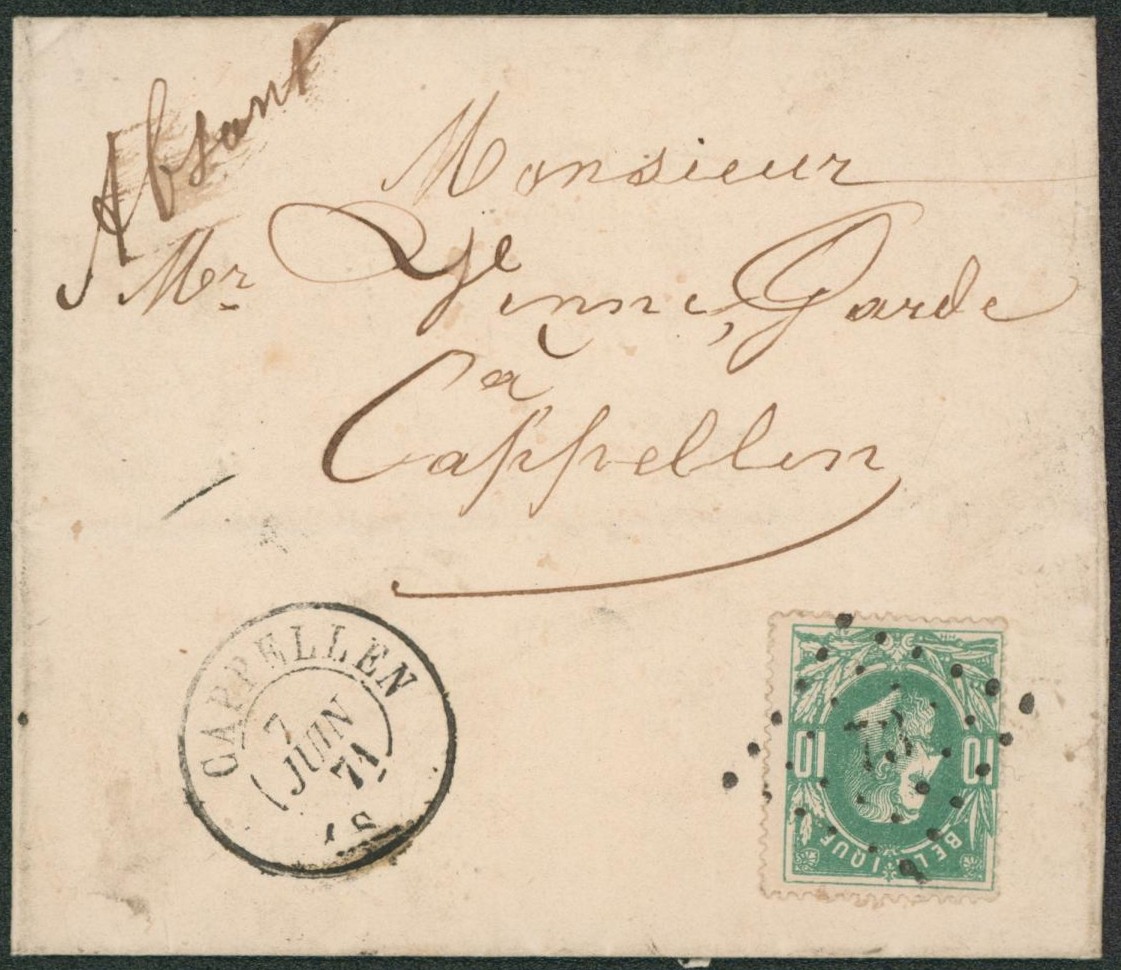 Absant
Monsieur
Mr Vinne, Garde
à
Cappellen
CAPPELLEN
7
JUIN
71
8
73
10 10
BELGIQUE